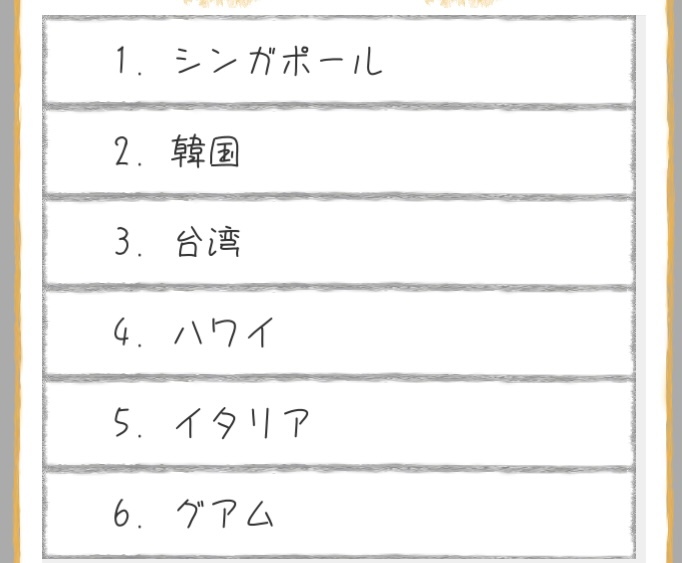 1. シンガポール
2. 韓国
3. 台湾
4. ハワイ
5. イタリア
6. グアム